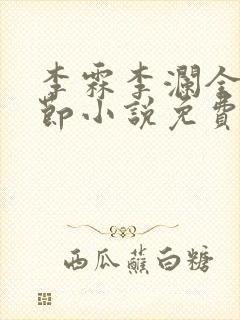 李霖李澜全
節小说免費
西瓜蘸白糖